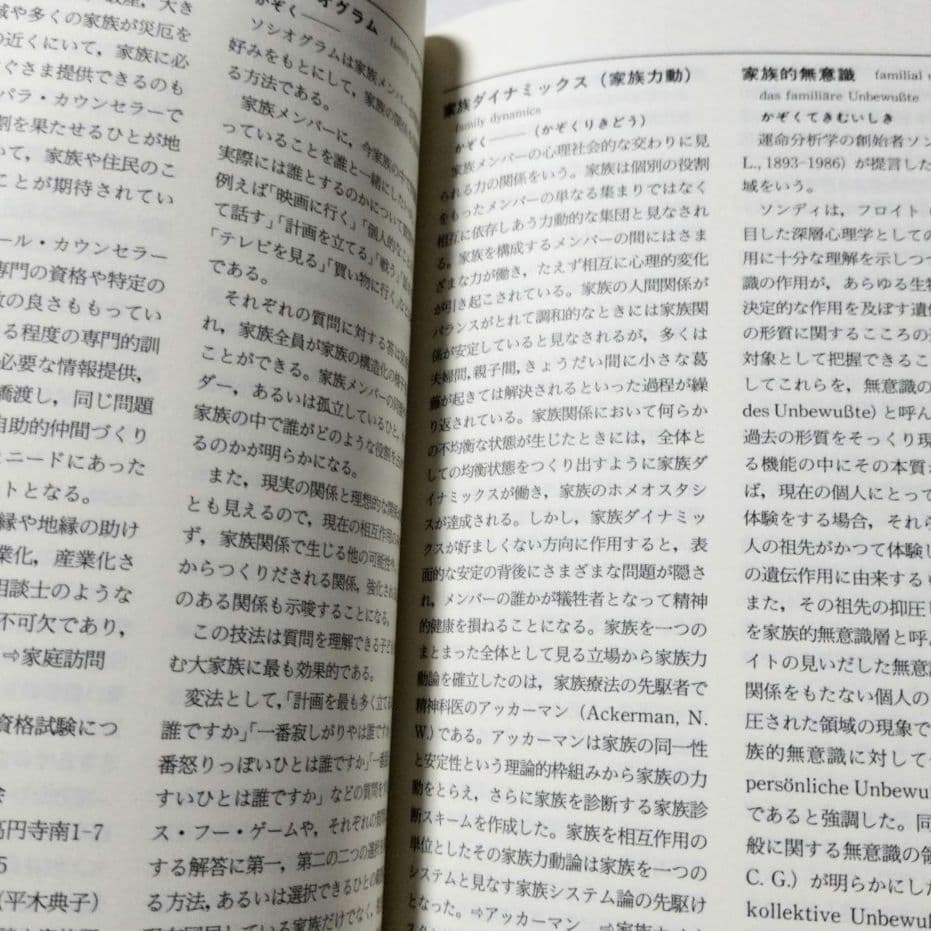 大き
域や多くの家族が災厄を
の近くにいて，家族に必
ぐさま提供できるのも
パラ・カウンセラーで
割を果たせるひとが地
いて，家族や住民のこ
ことが期待されてい
ール・カウンセラー
専門の資格や特定の
数の良さももってい
る程度の専門的訓
必要な情報提供，
橋渡し，同じ問題
自助的仲間づくり
ニードにあった
ートとなる。
縁や地縁の助け
業化，産業化さ
相談士のような
不可欠であり，
⇨家庭訪問
資格試験につ
高円寺南1-7
5
（平木典子）
グラム
かぞく
ソシオグラムは家族メンバー
好みをもとにして，家族の
る方法である。
家族メンバーに，今家族の中で
っていることを誰と一緒にした
実際には誰とするのかについて
例えば「映画に行く」「個人的な
て話す」「計画を立てる」「戦う」
「テレビを見る」「買い物に行く」な
である。
それぞれの質問に対する答
れ，家族全員が家族の構造化の
ことができる。家族メンバーの
ダー，あるいは孤立しているひと，
家族の中で誰がどのような役割を
るのかが明らかになる。
また，現実の関係と理想的な
とも見えるので，現在の相互作用の
ず，家族関係で生じる他の可能性や，
からつくりだされる関係，強化
のある関係も示唆することになる。
この技法は質問を理解できる子ど
む大家族に最も効果的である。
変法として，「計画を最も多く立て
誰ですか」「一番寂しがりやは誰です
番怒りっぽいひとは誰ですか」「一番
すいひとは誰ですか」などの質問を
ス・フー・ゲームや，それぞれの質問
する解答に第一，第二の二つの選択を
る方法，あるいは選択できるひとの範囲
家族ダイナミックス（家族力動）
family dynamics
かぞく――（かぞくりきどう）
家族メンバーの心理社会的な交わりに見
られる力の関係をいう。家族は個別の役割
をもったメンバーの単なる集まりではなく
相互に依存しあう力動的な集団と見なされ
る。家族を構成するメンバーの間にはさま
ざまな力が働き，たえず相互に心理的変化
が引き起こされている。家族の人間関係が
バランスがとれて調和的なときには家族関
係が安定していると見なされるが，多くは
夫婦間，親子間，きょうだい間に小さな葛
藤が起きては解決されるといった過程が繰
り返されている。家族関係において何らか
の不均衡な状態が生じたときには，全体と
しての均衡状態をつくり出すように家族ダ
イナミックスが働き，家族のホメオスタシ
スが達成される。しかし，家族ダイナミッ
クスが好ましくない方向に作用すると，表
面的な安定の背後にさまざまな問題が隠さ
れ，メンバーの誰かが犠牲者となって精神
的健康を損ねることになる。家族を一つの
まとまった全体として見る立場から家族力
動論を確立したのは，家族療法の先駆者で
精神科医のアッカーマン（Ackerman, N.
W.）である。アッカーマンは家族の同一性
と安定性という理論的枠組みから家族の力
動をとらえ，さらに家族を診断する家族診
断スキームを作成した。家族を相互作用の
単位としたその家族力動論は家族を一つの
システムと見なす家族システム論の先駆け
となった。⇨アッカーマン ⇨家族
家族的無意識 familial
das familiäre Unbewußte
かぞくてきむいしき
運命分析学の創始者ソン
L., 1893-1986）が提言した
域をいう。
ソンディは，フロイト（
目した深層心理学としての
用に十分な理解を示しつつ
識の作用が，あらゆる生
決定的な作用を及ぼす遺
の形質に関するこころの
対象として把握できるこ
してこれらを，無意識の
des Unbewußte）と呼ん
過去の形質をそっくり現
る機能の中にその本質
ば，現在の個人にとって
体験をする場合，それら
人の祖先がかつて体験し
の遺伝作用に由来する
また，その祖先の抑圧し
を家族的無意識層と呼
イトの見いだした無意
関係をもたない個人の
圧された領域の現象で
族的無意識に対して
persönliche Unbewu
であると強調した。同
般に関する無意識の領
C. G.）が明らかにした
kollektive Unbewu